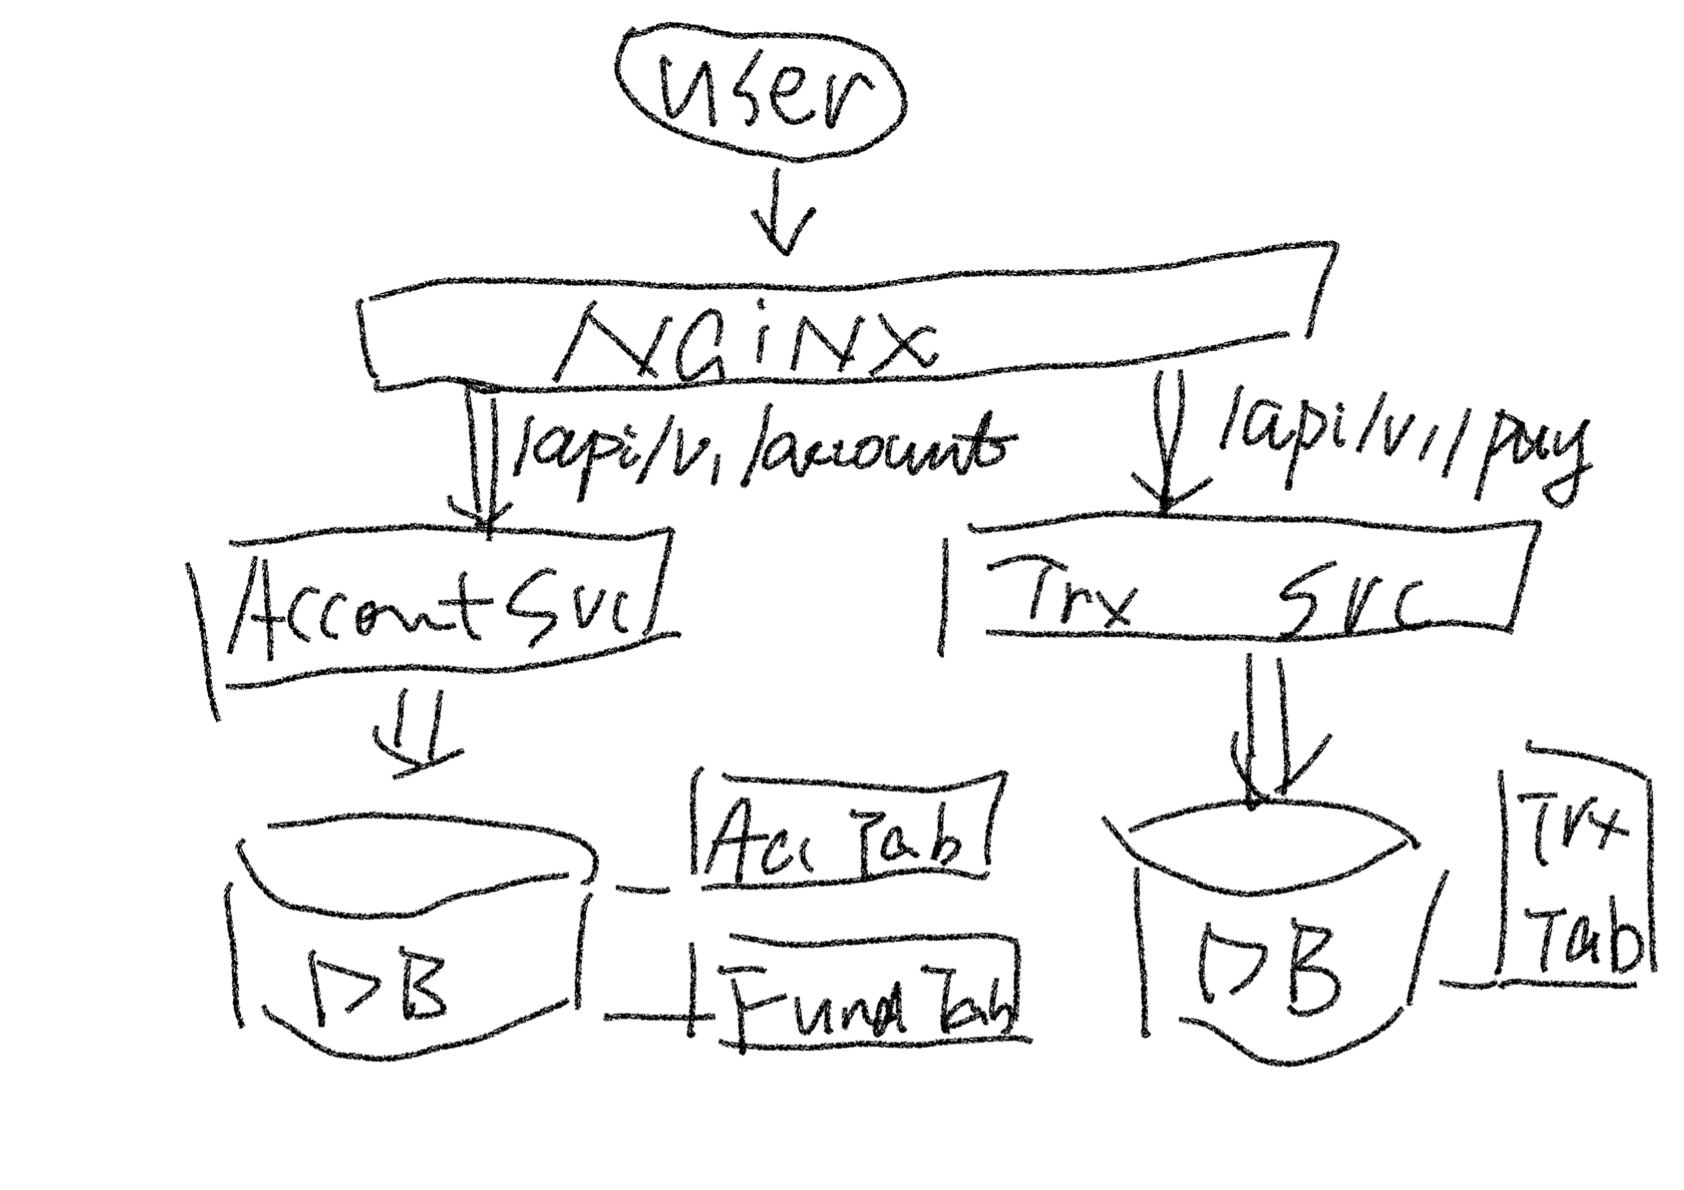 user
NGiNX
/api/v1/account
/api/v1/pay
AccontSvc
Trx Svc
Acc Tab
Fund Tab
DB
DB
Trx
Tab